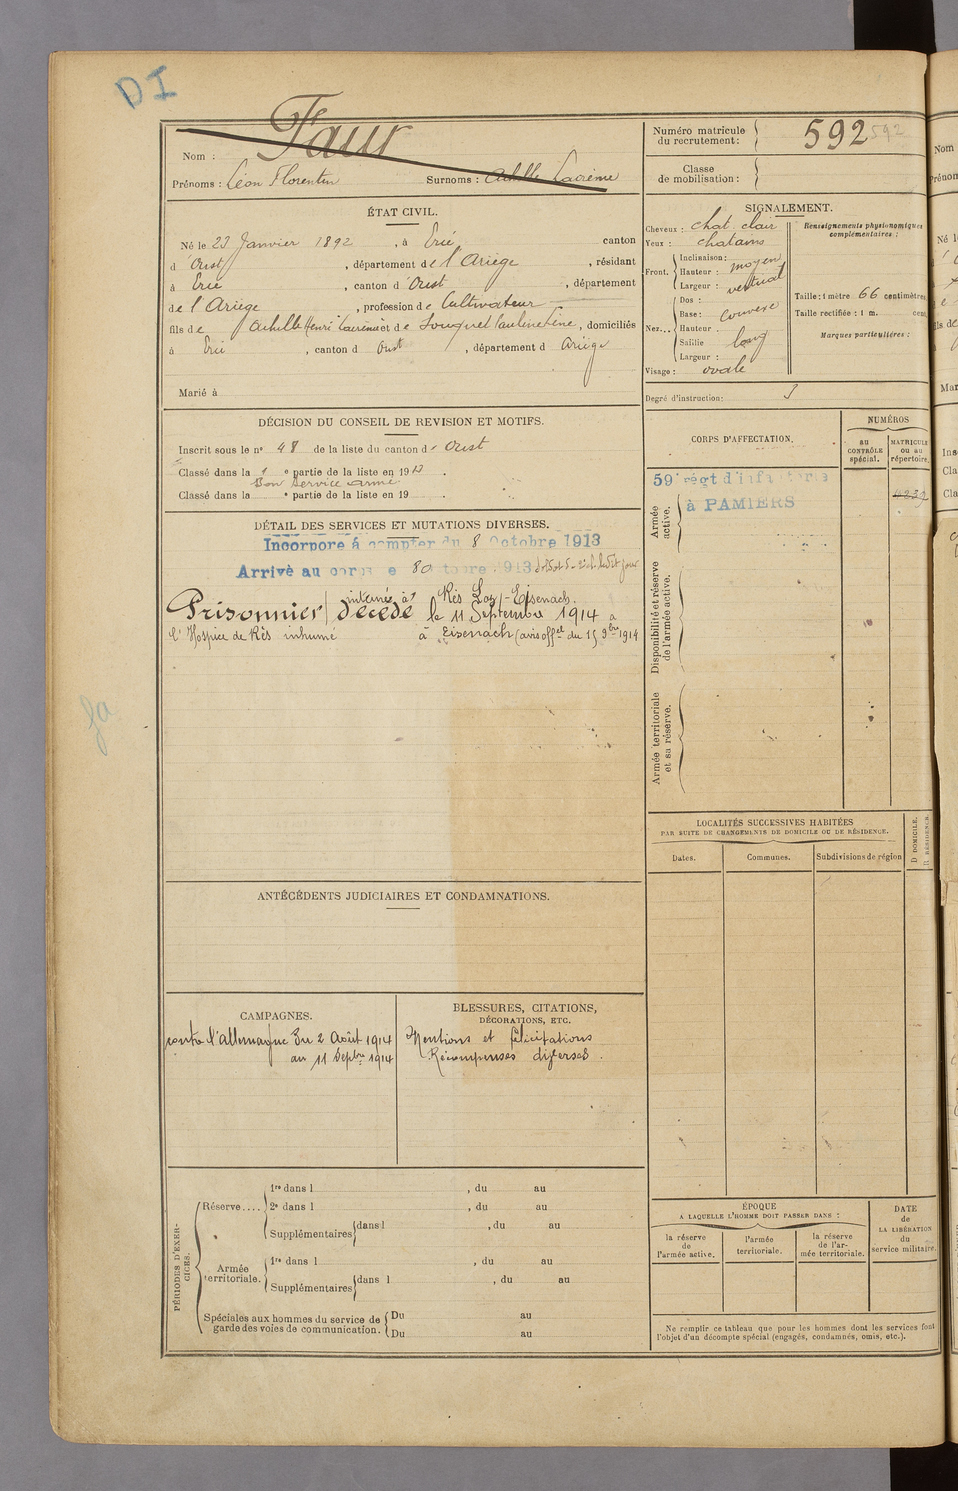 DI
Nom : Faur
Prénoms : Léon Florentin Surnoms : Achille Lacrème
Numéro matricule du recrutement : 592 592
Classe de mobilisation :
ÉTAT CIVIL.
Né le 23 Janvier 1892, à Ercé canton
d'Oust, département de l'Ariège, résidant
à Ercé, canton d'Oust, département
de l'Ariège, profession de Cultivateur
fils de Achille Henri Lacrème et de Pauline, domiciliés
à Ercé, canton d Oust, département d Ariège
Marié à
SIGNALEMENT.
Cheveux : chat. clair
Yeux : chatains
Front. Inclinaison : moyen
Hauteur :
Largeur : vertical
Nez... Dos :
Base : convexe
Hauteur :
Saillie long
Largeur :
Visage : ovale
Renseignements physionomiques complémentaires :
Taille : 1 mètre 66 centimètres.
Taille rectifiée : 1 m. cent.
Marques particulières :
Degré d'instruction : 3
DÉCISION DU CONSEIL DE REVISION ET MOTIFS.
Inscrit sous le n° 48 de la liste du canton d' Oust
Classé dans la 1e partie de la liste en 1913.
Bon Service armé
Classé dans la e partie de la liste en 19 .
CORPS D'AFFECTATION.
NUMÉROS
au CONTRÔLE spécial.
MATRICULE ou au répertoire.
Armée active.
59 régt d'infanterie
à PAMIERS
Disponibilité et réserve de l'armée active.
Armée territoriale et sa réserve.
DÉTAIL DES SERVICES ET MUTATIONS DIVERSES.
Incorporé à compter du 8 Octobre 1913
Arrivé au corps le 8 Octobre 1913 et Soldat de 2e cl. ledit jour
Prisonnier interné à
Décédé le 11 Septembre 1914 à
l'Hospice de inhumé à Eisenach (avis offel du 15 9bre 1914
LOCALITÉS SUCCESSIVES HABITÉES
PAR SUITE DE CHANGEMENTS DE DOMICILE OU DE RÉSIDENCE.
Dates.
Communes.
Subdivisions de région
D DOMICILE.
R RÉSIDENCE.
ANTÉCÉDENTS JUDICIAIRES ET CONDAMNATIONS.
CAMPAGNES.
contre l'Allemagne du 2 Août 1914
au 11 Septbre 1914
BLESSURES, CITATIONS,
DÉCORATIONS, ETC.
Mentions et félicitations
Récompenses diverses.
PÉRIODES D'EXERCICES.
Réserve....
1re dans l , du au
2e dans l , du au
Supplémentaires dans l , du au
Armée territoriale.
1re dans l , du au
Supplémentaires dans l , du au
Spéciales aux hommes du service de garde des voies de communication.
Du au
Du au
ÉPOQUE
A LAQUELLE L'HOMME DOIT PASSER DANS :
la réserve de l'armée active.
l'armée territoriale.
la réserve de l'armée territoriale.
DATE de LA LIBÉRATION du service militaire.
Ne remplir ce tableau que pour les hommes dont les services font
l'objet d'un décompte spécial (engagés, condamnés, omis, etc.).